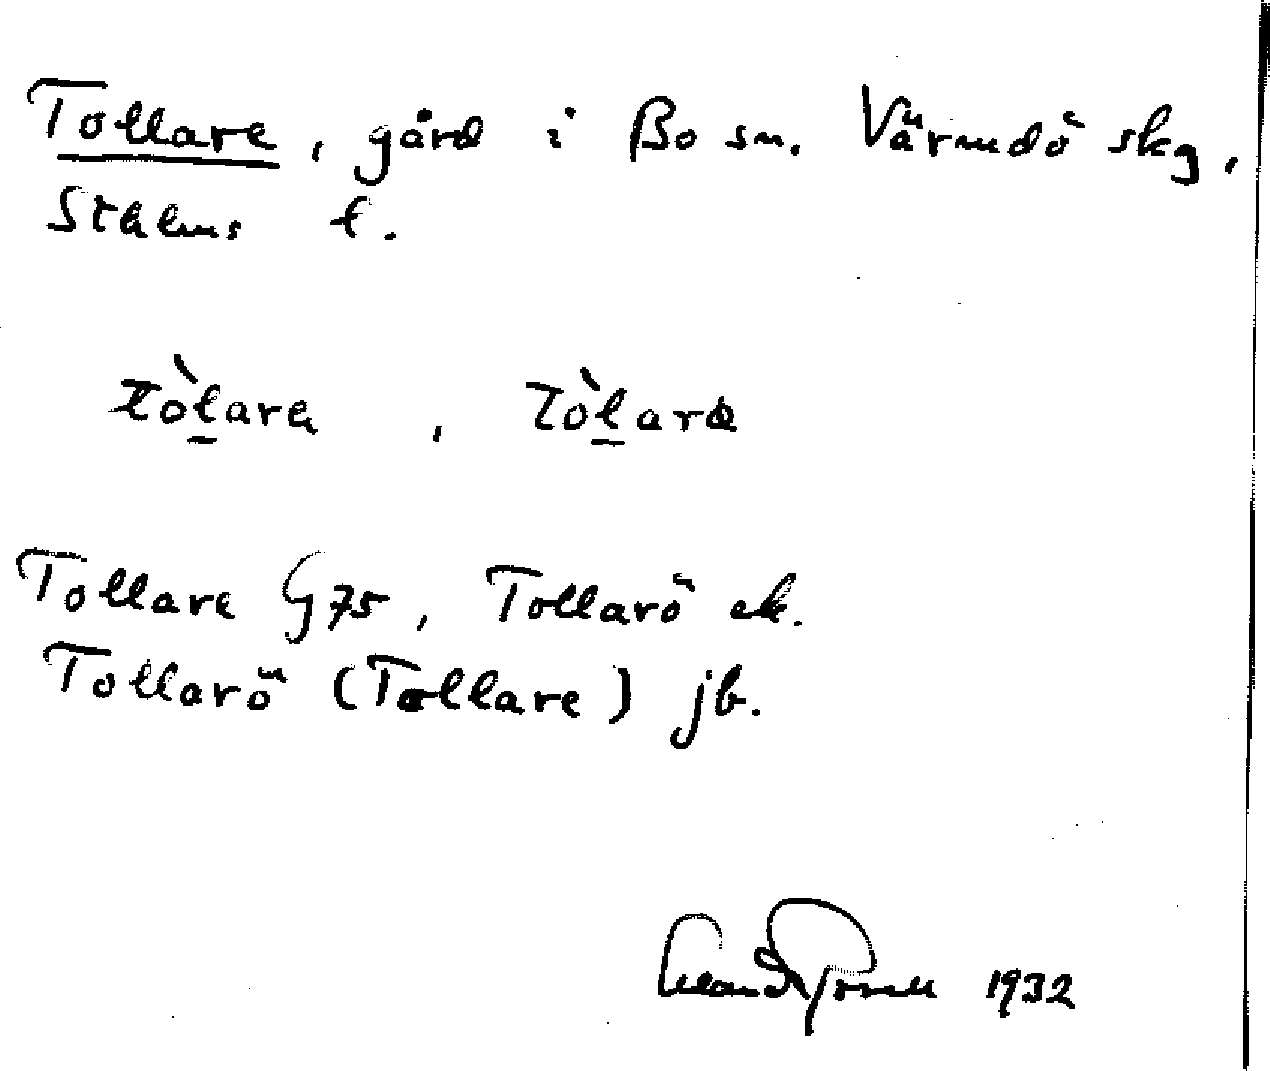 Tollare, gård i Bo sn. Värmdö skg,
Sthlms l.
tòl̲ara, tòl̲arə
Tollare G 75, Tollarö ek.
Tollarö (Tollare) jb.
1932